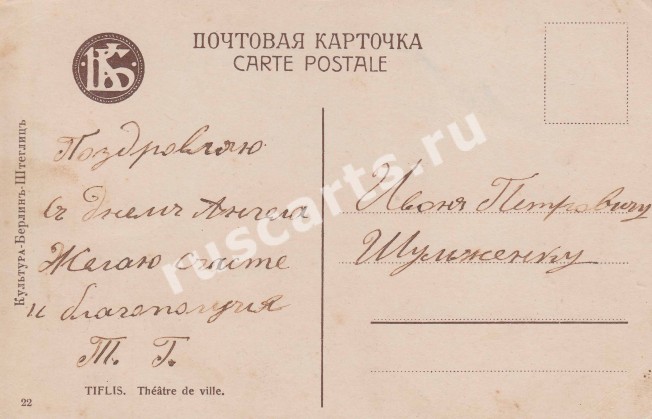 ПОЧТОВАЯ КАРТОЧКА
CARTE POSTALE
Культура-Берлинъ-Штеглицъ
Поздровляю
съ днемъ Ангела
Желаю счастье
и благополучия
Т. Г.
Ивоня Петровичу
Шульженку
TIFLIS. Théâtre de ville.
22
ruscarts.ru